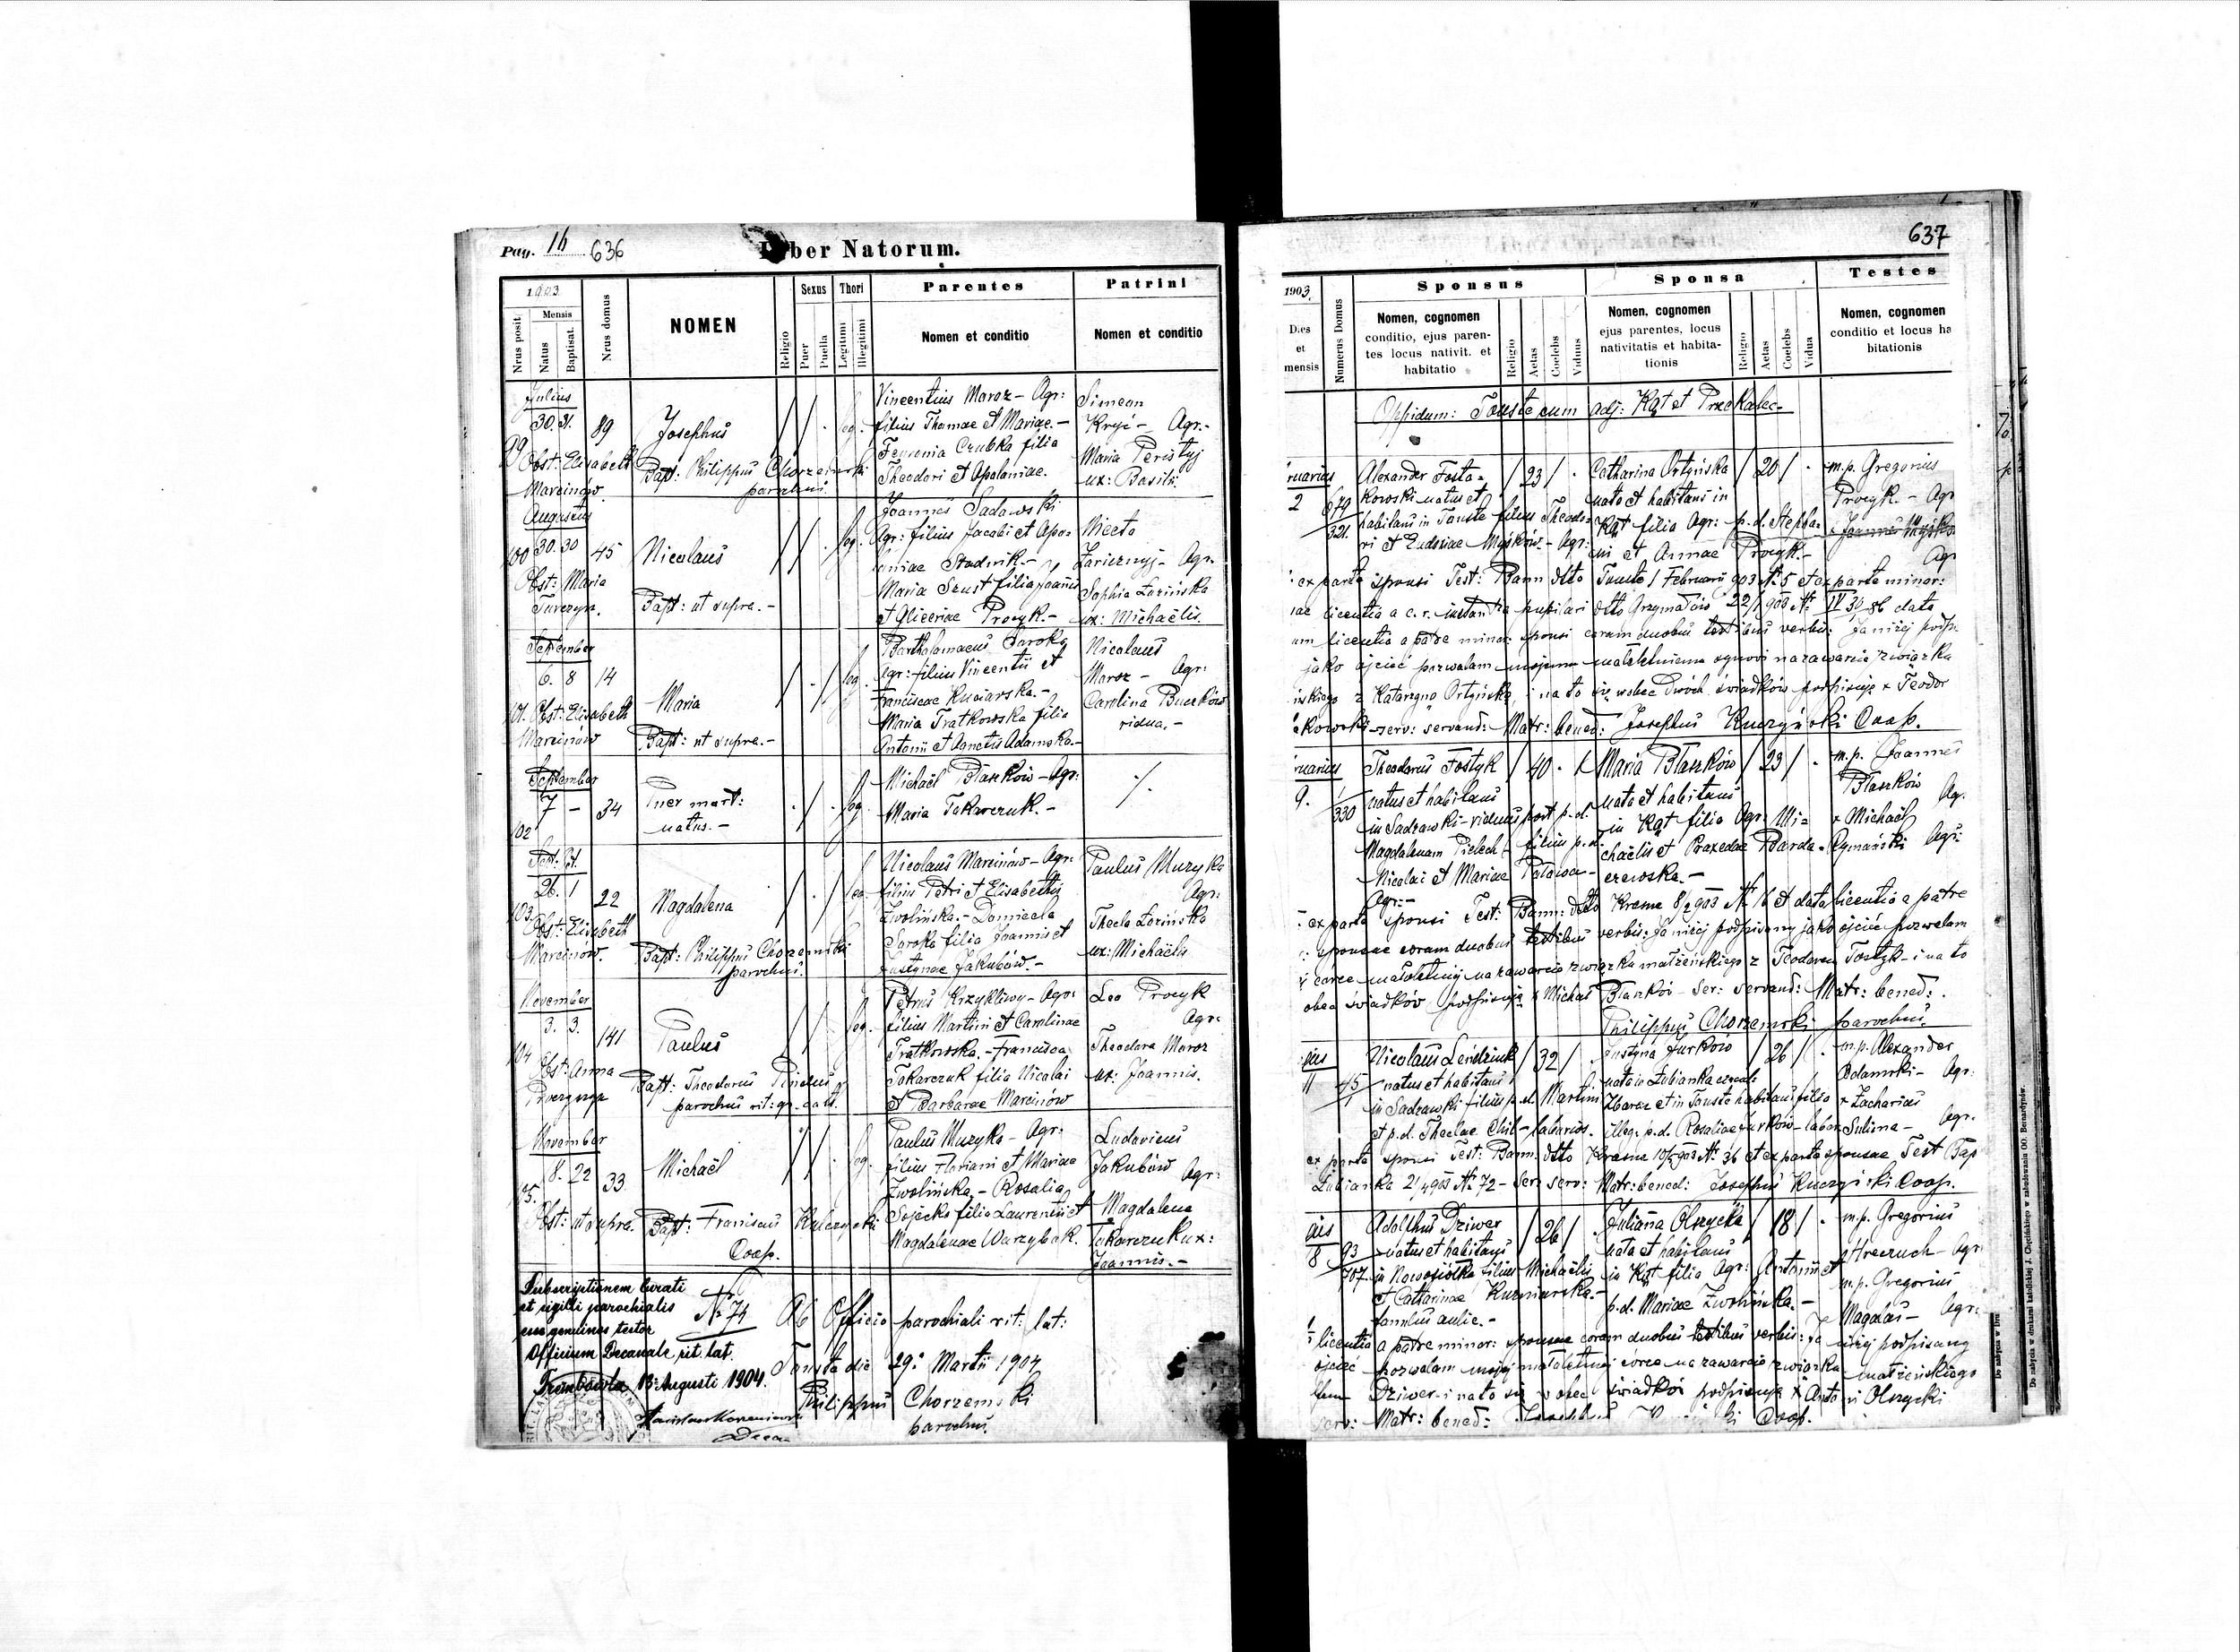 Pag. 16 636 Liber Natorum.
1903.
Nrus posit.
Mensis
Natus
Baptisat.
Nrus domus
NOMEN
Religio
Sexus
Puer
Puella
Thori
Legitimi
Illegitimi
Parentes
Nomen et conditio
Patrini
Nomen et conditio
Julius
30. 31. 89
99
Josephus
leg.
Obst: Elisabeth
Marcinów
Bapt: Philippus Chorzemski
parochus.
Vincentius Maroz - Agr:
filius Thomae et Mariae. -
Czubka filia
Theodori et Apoloniae.
Simeon
Kryś - Agr. -
Maria Peristyj
ux: Basilii
Augustus
100 30. 30 45 Nicolaus
leg.
Obst: Maria
Bapt: ut supra. -
Joannes Sadowski
Agr: filius Jacobi et Apo-
loniae Stadnik. -
Maria Szust filia Joannis
et Gliceriae Procyk. -
Zaricznyj - Agr.
Sophia Lozińska
ux: Michaëlis.
September
6. 8 14
101. Maria
leg.
Obst: Elisabeth
Marcinów
Bapt: ut supra. -
Bartholomaeus Soroka
Agr: filius Vincentii et
Franciscae
Maria Tratkowska filia
Antonii et Agnetis Adamska. -
Nicolaus
Maroz - Agr:
Carolina Buczków
vidua. -
September
7 - 34
102
Puer mort:
natus. -
leg.
Michaël Błaszków - Agr:
Maria Tokarczuk. -
Sept. Oct.
26. 1 22
103. Magdalena
leg.
Obst: Elisabeth
Marcinów.
Bapt: Philippus Chorzemski
parochus.
Nicolaus Marcinów - Agr:
filius Petri et Elisabeth
Zwolińska. -
Soroka filia Joannis et
Justynae Jakubów. -
Paulus Muzyka
Agr:
Thecla Lozińska
ux: Michaëlis
November
3. 3. 141
104 Paulus
leg.
Obst: Anna
Bapt: Theodorus
parochus rit: gr. cath.
Petrus Krzykliwy - Agr:
filius Martini et Carolinae
Tratkowska. - Francisca
Tokarczuk filia Nicolai
et Barbarae Marcinów
Leo Procyk
Agr:
Theodora Maroz
ux: Joannis.
November
8. 22 33
105. Michaël
leg.
Obst: ut supra.
Coop.
Paulus Muzyka - Agr:
filius Floriani et Mariae
Zwolińska. - Rosalia
filia Laurentii et
Magdalenae
Ludovicus
Jakubów Agr:
Magdalena
Tokarczuk ux:
Joannis. -
Subscriptionem Curati
et sigilli parochialis
esse genuinas testor
Officium Decanale rit. lat.
Trembowla 18 Augusti 1904.
Nr 74
Ab Officio parochiali rit: lat:
Touste die 29. Martii 1904
Philippus Chorzemski
parochus.
637
1903.
Dies
et
mensis
Numerus Domus
Sponsus
Nomen, cognomen
conditio, ejus paren-
tes locus nativit. et
habitatio
Religio
Aetas
Coelebs
Viduus
Sponsa
Nomen, cognomen
ejus parentes, locus
nativitatis et habita-
tionis
Religio
Aetas
Coelebs
Vidua
Testes
Nomen, cognomen
conditio et locus ha
bitationis
Oppidum: Touste cum adj: Kąt et Przekalec.
ruarius
2 679
321.
Alexander Fosta-
kowski natus et
habitans in Touste filius Theodo-
ri et Eudoxiae Myśków - Agr:
23
Catharina Ortyńska
nata et habitans in
Kąt filia Agr: p. d. Stepha-
ni et Annae Procyk. -
20
m.p. Gregorius
Procyk. - Agr
Agr
ex parte sponsi Test: Bann dtto Touste 1 Februarii 903 Nr 5 et ex parte minor:
licentia a c. r. pupilari dtto Grzymałów 22/1 903 Nr IV 30/86 data
licentia a patre minor: sponsi coram duobus testibus verbis: Ja niżej
jako ojciec pozwalam mojemu małoletniemu synowi na zawarcie związku
z Katarzyną Ortyńską, i na to się wobec dwóch świadków podpisuję × Teodor
serv: servand: Matr: bened: Josephus Kuczyński Coop.
ruarius
9. 330
Theodorus Fostyk
natus et habitans
in Sadzawki - viduus post p. d.
Magdalenam Pielech - filius p. d.
Nicolai et Mariae
Agr: -
40
Maria Błaszków
nata et habitans
in Kąt filia Agr: Mi-
chaëlis et Praxedae Barda-
czewska. -
23
m.p. Joannes
Błaszków Ag.
× Michaël
Rymański Agr:
ex parte sponsi Test: Bann: dtto Krasne 8/2 903 Nr 16 et data licentia a patre
sponsae coram duobus testibus verbis: Ja niżej podpisany jako ojciec pozwalam
córce małoletniej na zawarcie związku małżeńskiego z Teodorem Fostyk - i na to
obec świadków podpisuję × Michał Błaszków - Ser: Servand: Matr: bened:.
Philippus Chorzemski parochus.
aius
11 45
1
Nicolaus Lendziuk
natus et habitans
in Sadzawki filius p. d. Martini
et p. d. Theclae Chil - laborios.
32
Justyna Jurków
nata in Łubianka
Zbaraz et in Touste habitans filia
illeg. p. d. Rosaliae Jurków - labor.
26
m.p. Alexander
Adamski - Agr:
× Zacharias
Sulima - Agr.
ex parte sponsi Test: Bann. dtto Krasne 10/5 903 Nr 36 et ex parte sponsae Test Bap
Łubianka 21/4 903 Nr 72 - Ser: serv: Matr: bened: Josephus Kuczyński Coop.
aius
8 93
707.
Adolphus Dziwer
natus et habitans
in Nowosiółka filius Michaëlis
et Catharinae Kuzniarska. -
famulus aulic. -
26
Juliana Olszycka
nata et habitans
in Kąt filia Agr: Antonii et
p. d. Mariae Zwolińska. -
18
m.p. Gregorius
Hreczuch - Agr
m.p. Gregorius
Magdas - Agr:
licentia a patre minor: sponsae coram duobus testibus verbis: Ja niżej podpisany
ojciec pozwalam mojej małoletniej córce na zawarcie związku małżeńskiego
Dziwer i na to się wobec świadków podpisuję × Antoni Olszycki
serv: Matr: bened: Coop.